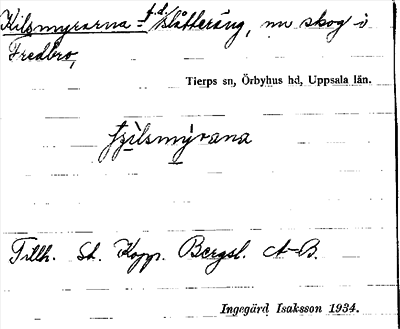 Kilsmyrarna - f.d. slåtteräng, nu skog i
Fredbro,
Tierps sn, Örbyhus hd, Uppsala län.
Tillh. St. Kopp. Bergsl. A-B.
Ingegärd Isaksson 1934.